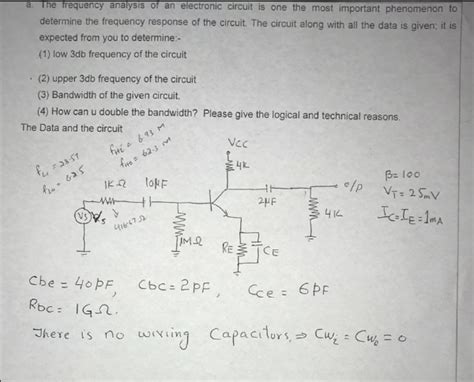 a. The frequency analysis of an electronic circuit is one the most important phenomenon to
determine the frequency response of the circuit. The circuit along with all the data is given; it is
expected from you to determine:-
(1) low 3db frequency of the circuit
(2) upper 3db frequency of the circuit
(3) Bandwidth of the given circuit.
(4) How can u double the bandwidth? Please give the logical and technical reasons.
The Data and the circuit
fHi = 6.93 M
fHo = 62.3 M
VCC
4K
β = 100
VT = 25mV
IC = IE = 1mA
1KΩ
10μF
2μF
o/p
4K
VS
Vs
1MΩ
RE
CE
Cbe = 40PF, Cbc = 2PF, Cce = 6PF
Rbc = 1GΩ.
There is no wiring Capacitors, ⇒ Cwi = Cwo = 0